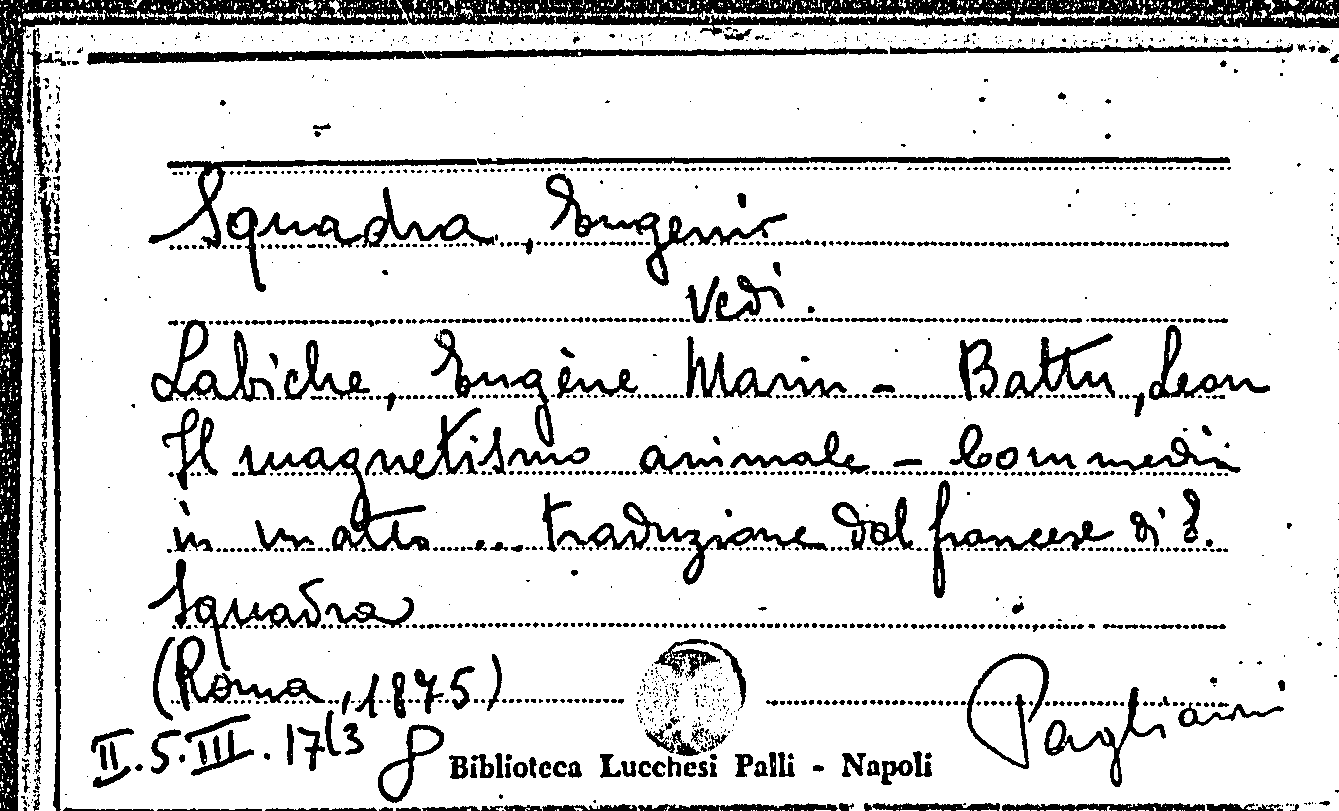 Squadra, Eugenio
Vedi.
Labiche, Eugène Marin - Battu, Leon
Il magnetismo animale - Commedia
in un atto ... traduzione dal francese di E.
Squadra
(Roma, 1875)
II.5.III.17(3
Biblioteca Lucchesi Palli - Napoli